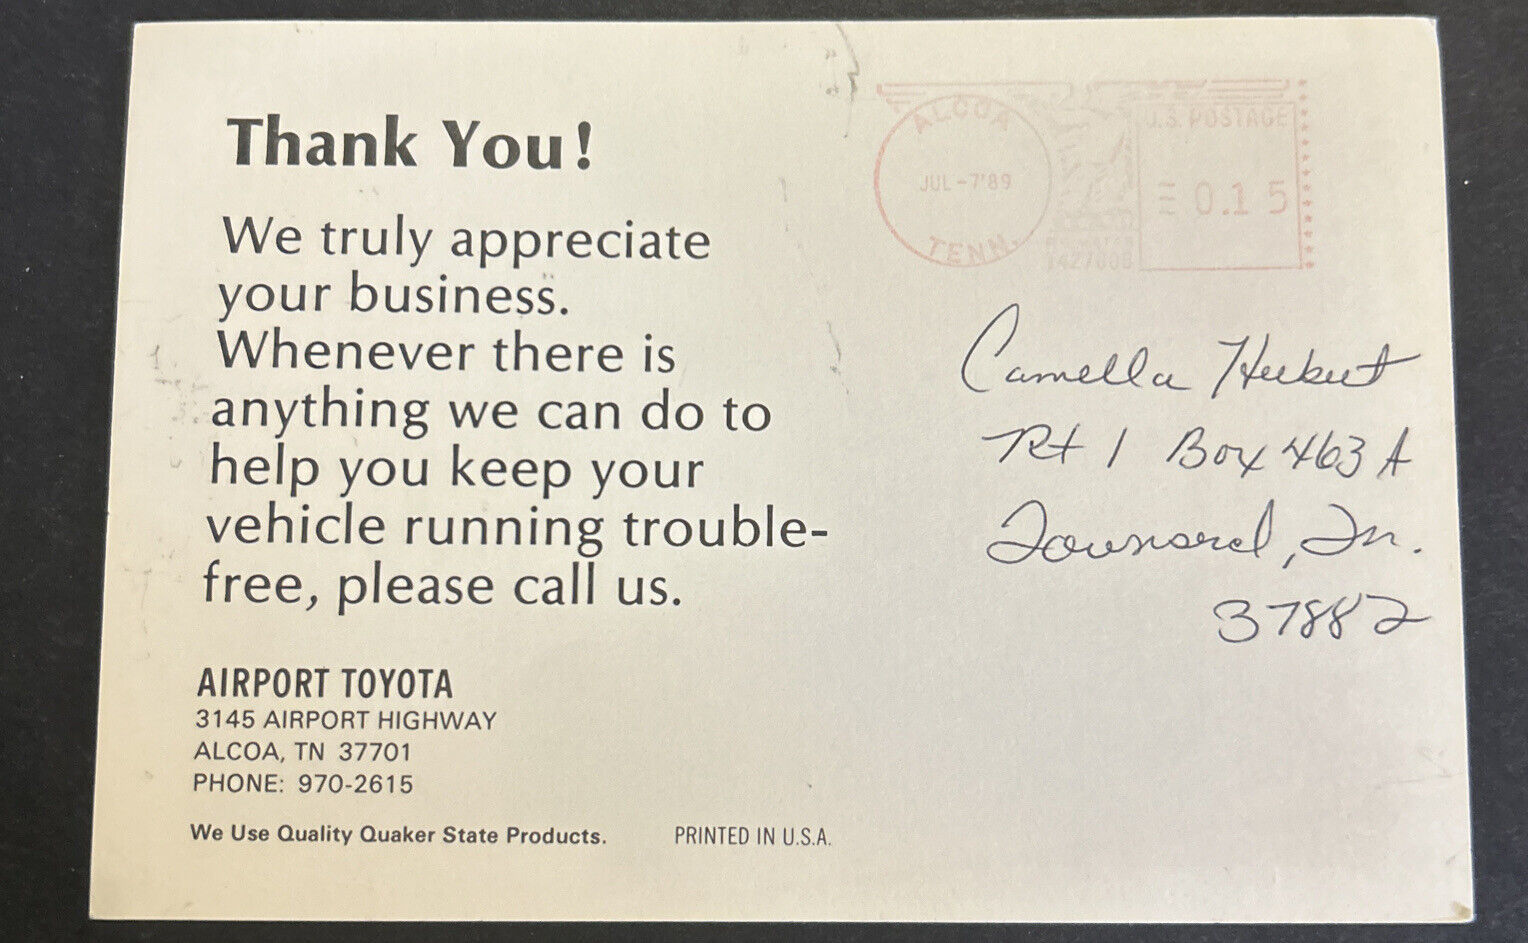 Thank You!
We truly appreciate
your business.
Whenever there is
anything we can do to
help you keep your
vehicle running trouble-
free, please call us.
AIRPORT TOYOTA
3145 AIRPORT HIGHWAY
ALCOA, TN 37701
PHONE: 970-2615
We Use Quality Quaker State Products.
PRINTED IN U.S.A.
ALCOA
JUL -7'89
TENN.
U.S. POSTAGE
0.15
Camella
Rt 1 Box 463 A
Townsend, Tn.
37882